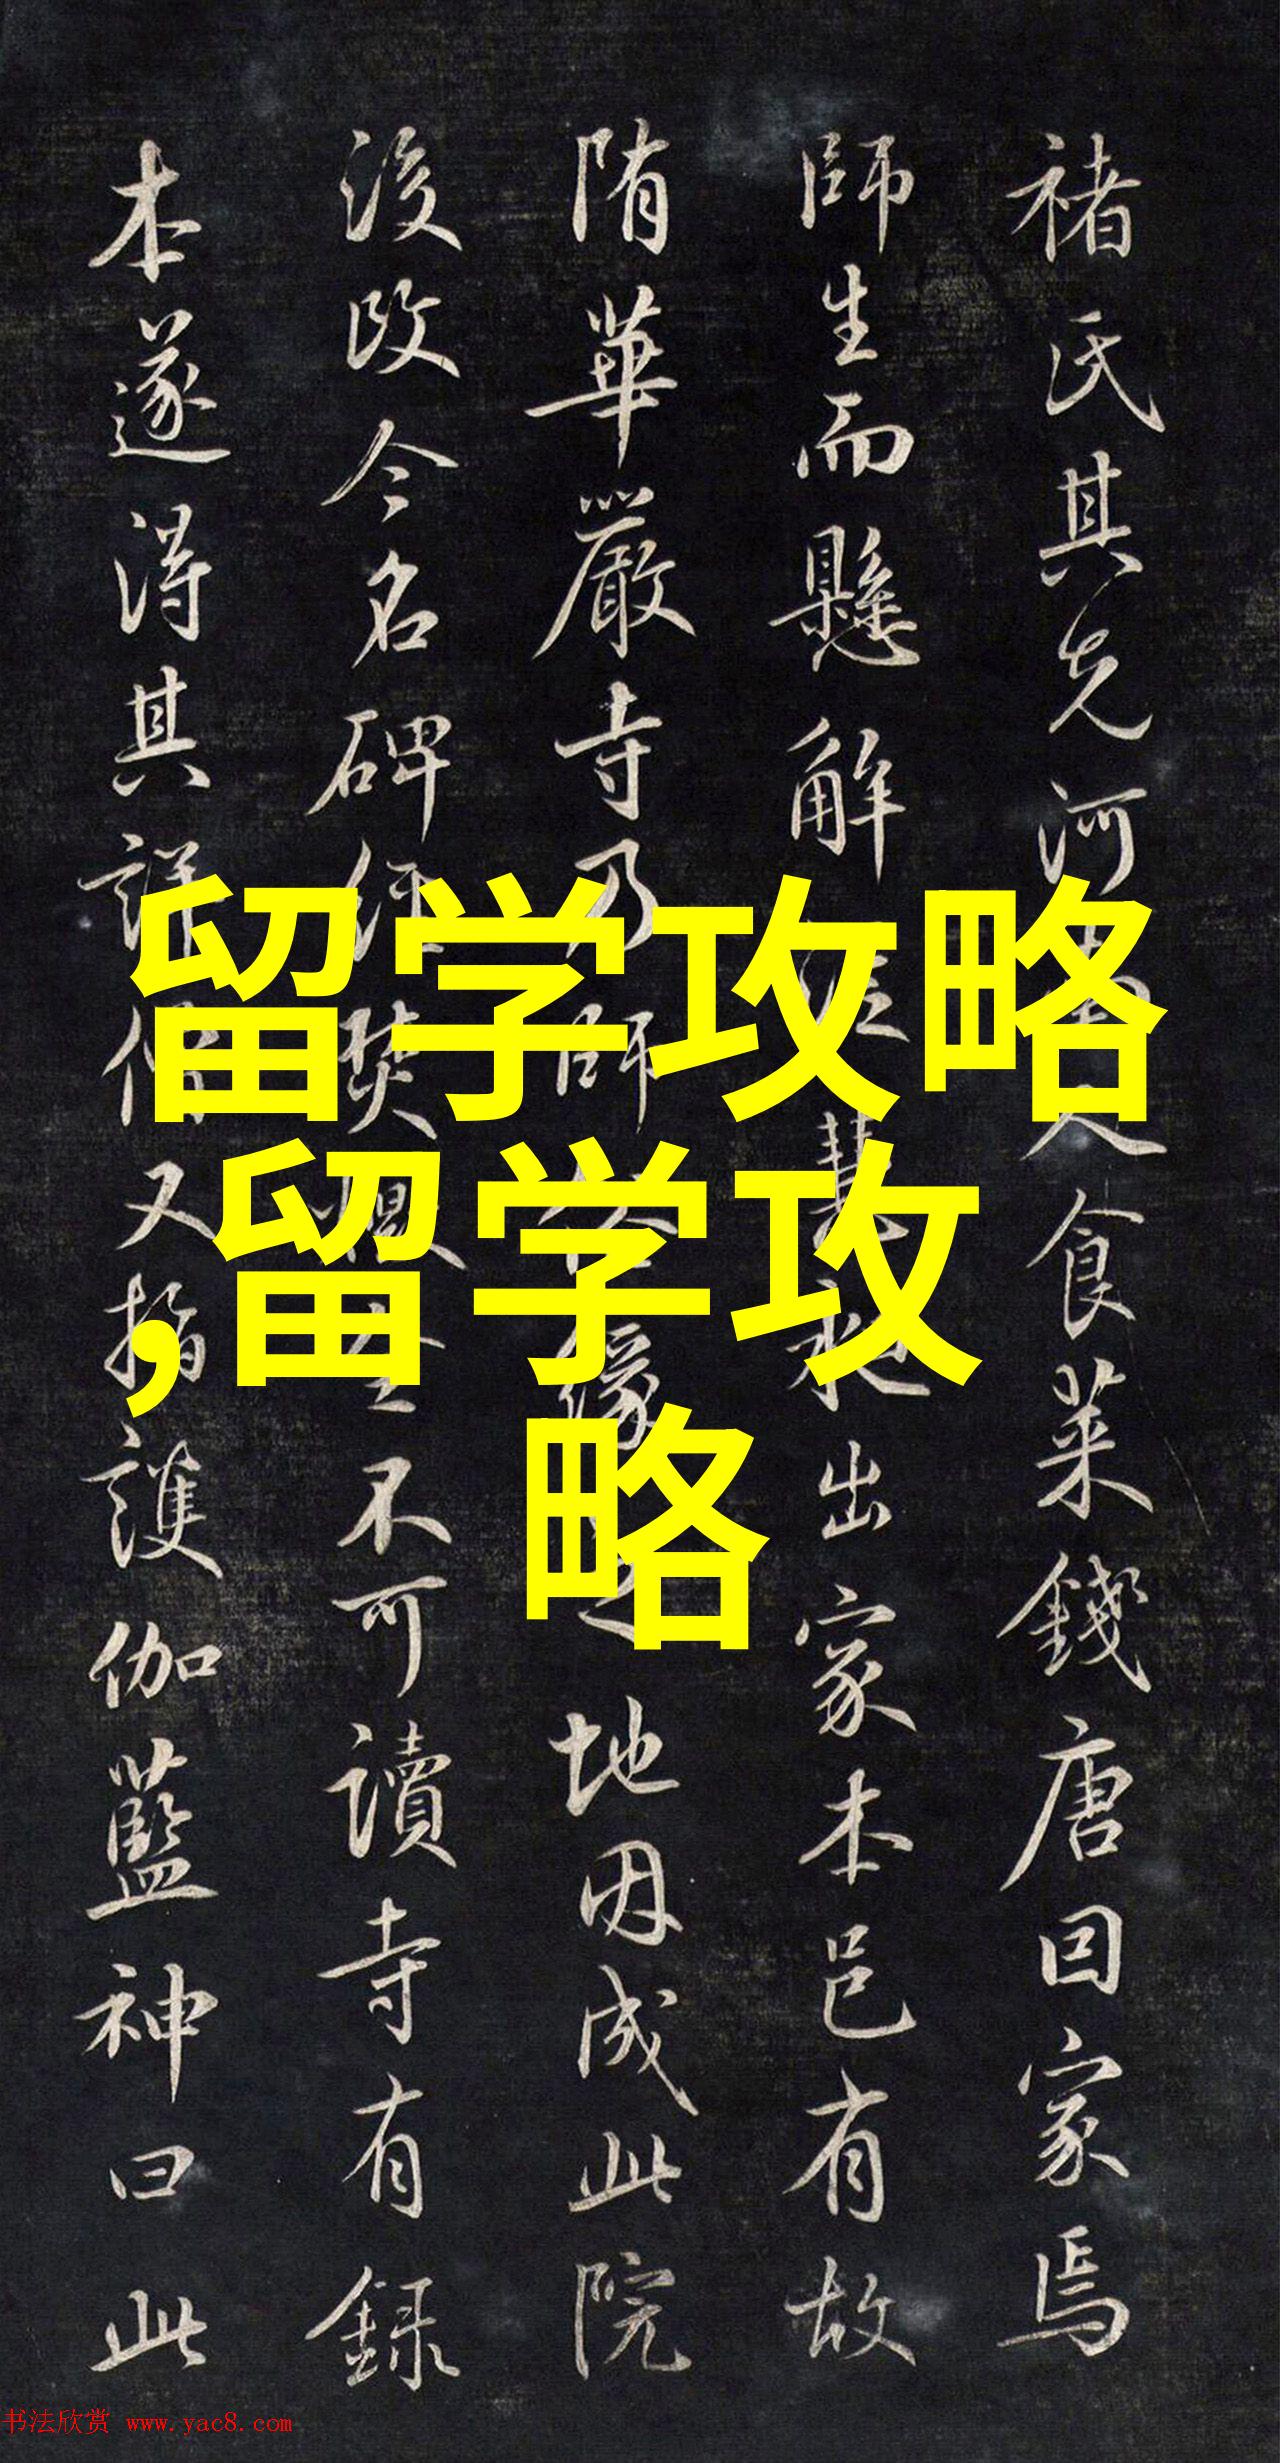 褚氏其先河南人食菜錢唐因家焉
師生而懸解 慧 出家本邑有故
隋華嚴寺乃師 緣之地因成此院
後改今名碑經焚 不可讀寺有録
本遂得其詳 又指護伽藍神曰此
留学攻略
,留学攻
略
书法欣赏 www.yac8.com